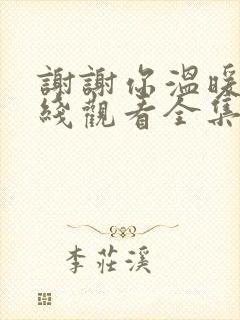 謝謝你溫暖
綫觀看全集
李莊溪